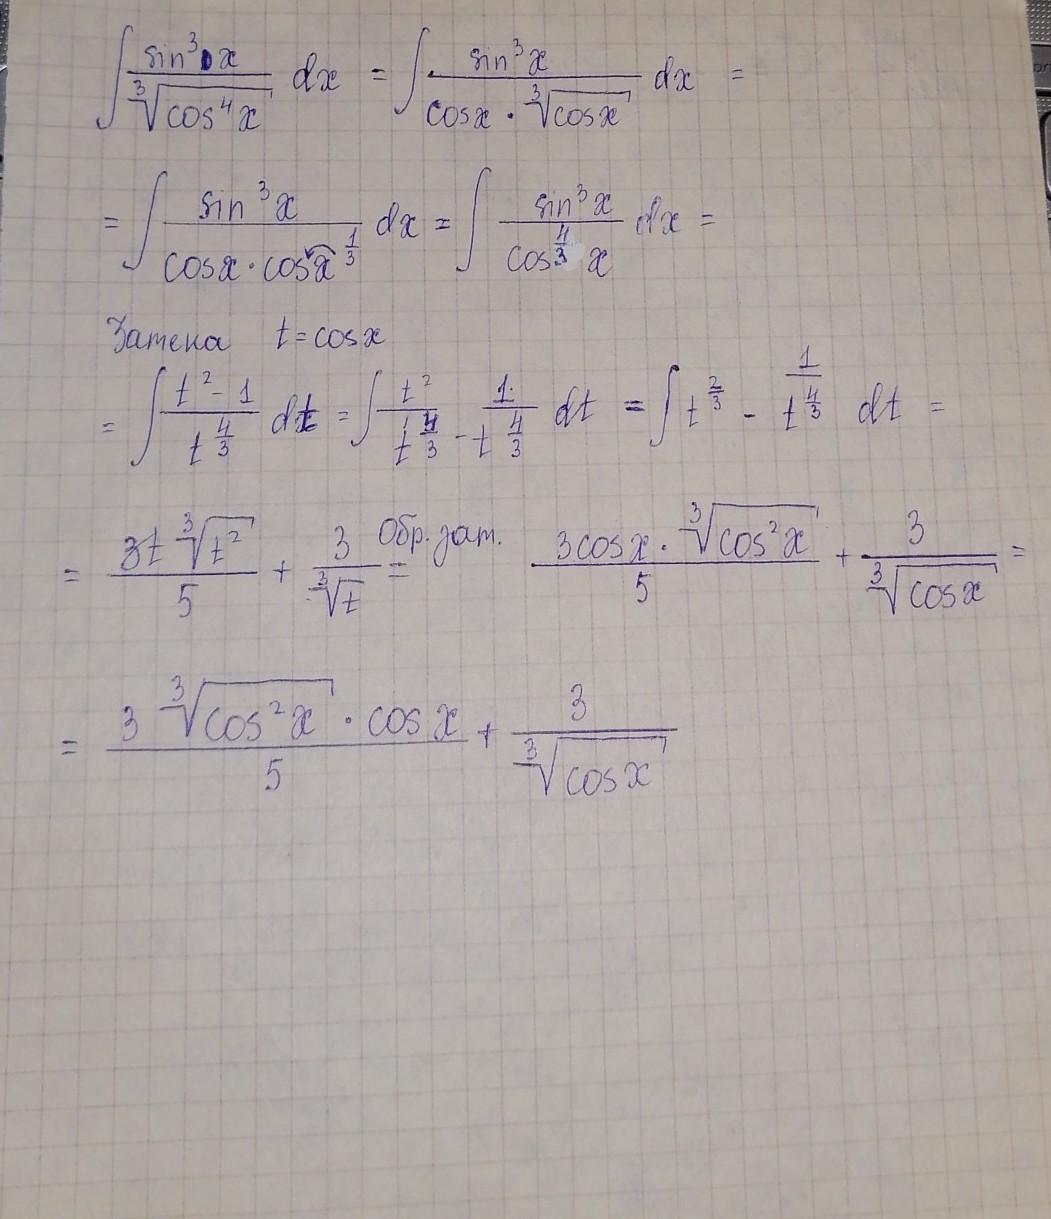 ∫ sin³x / ∛(cos⁴x) dx = ∫ sin³x / (cosx · ∛(cosx)) dx =
= ∫ sin³x / (cosx · cosx^(1/3)) dx = ∫ sin³x / cos^(4/3) x dx =
Замена t = cosx
= ∫ (t² - 1) / t^(4/3) dt = ∫ t² / t^(4/3) - 1 / t^(4/3) dt = ∫ t^(2/3) - 1 / t^(4/3) dt =
= 3t ∛(t²) / 5 + 3 / ∛t = Обр. зам. 3cosx · ∛(cos²x) / 5 + 3 / ∛(cosx) =
= 3 ∛(cos²x) · cosx / 5 + 3 / ∛(cosx)